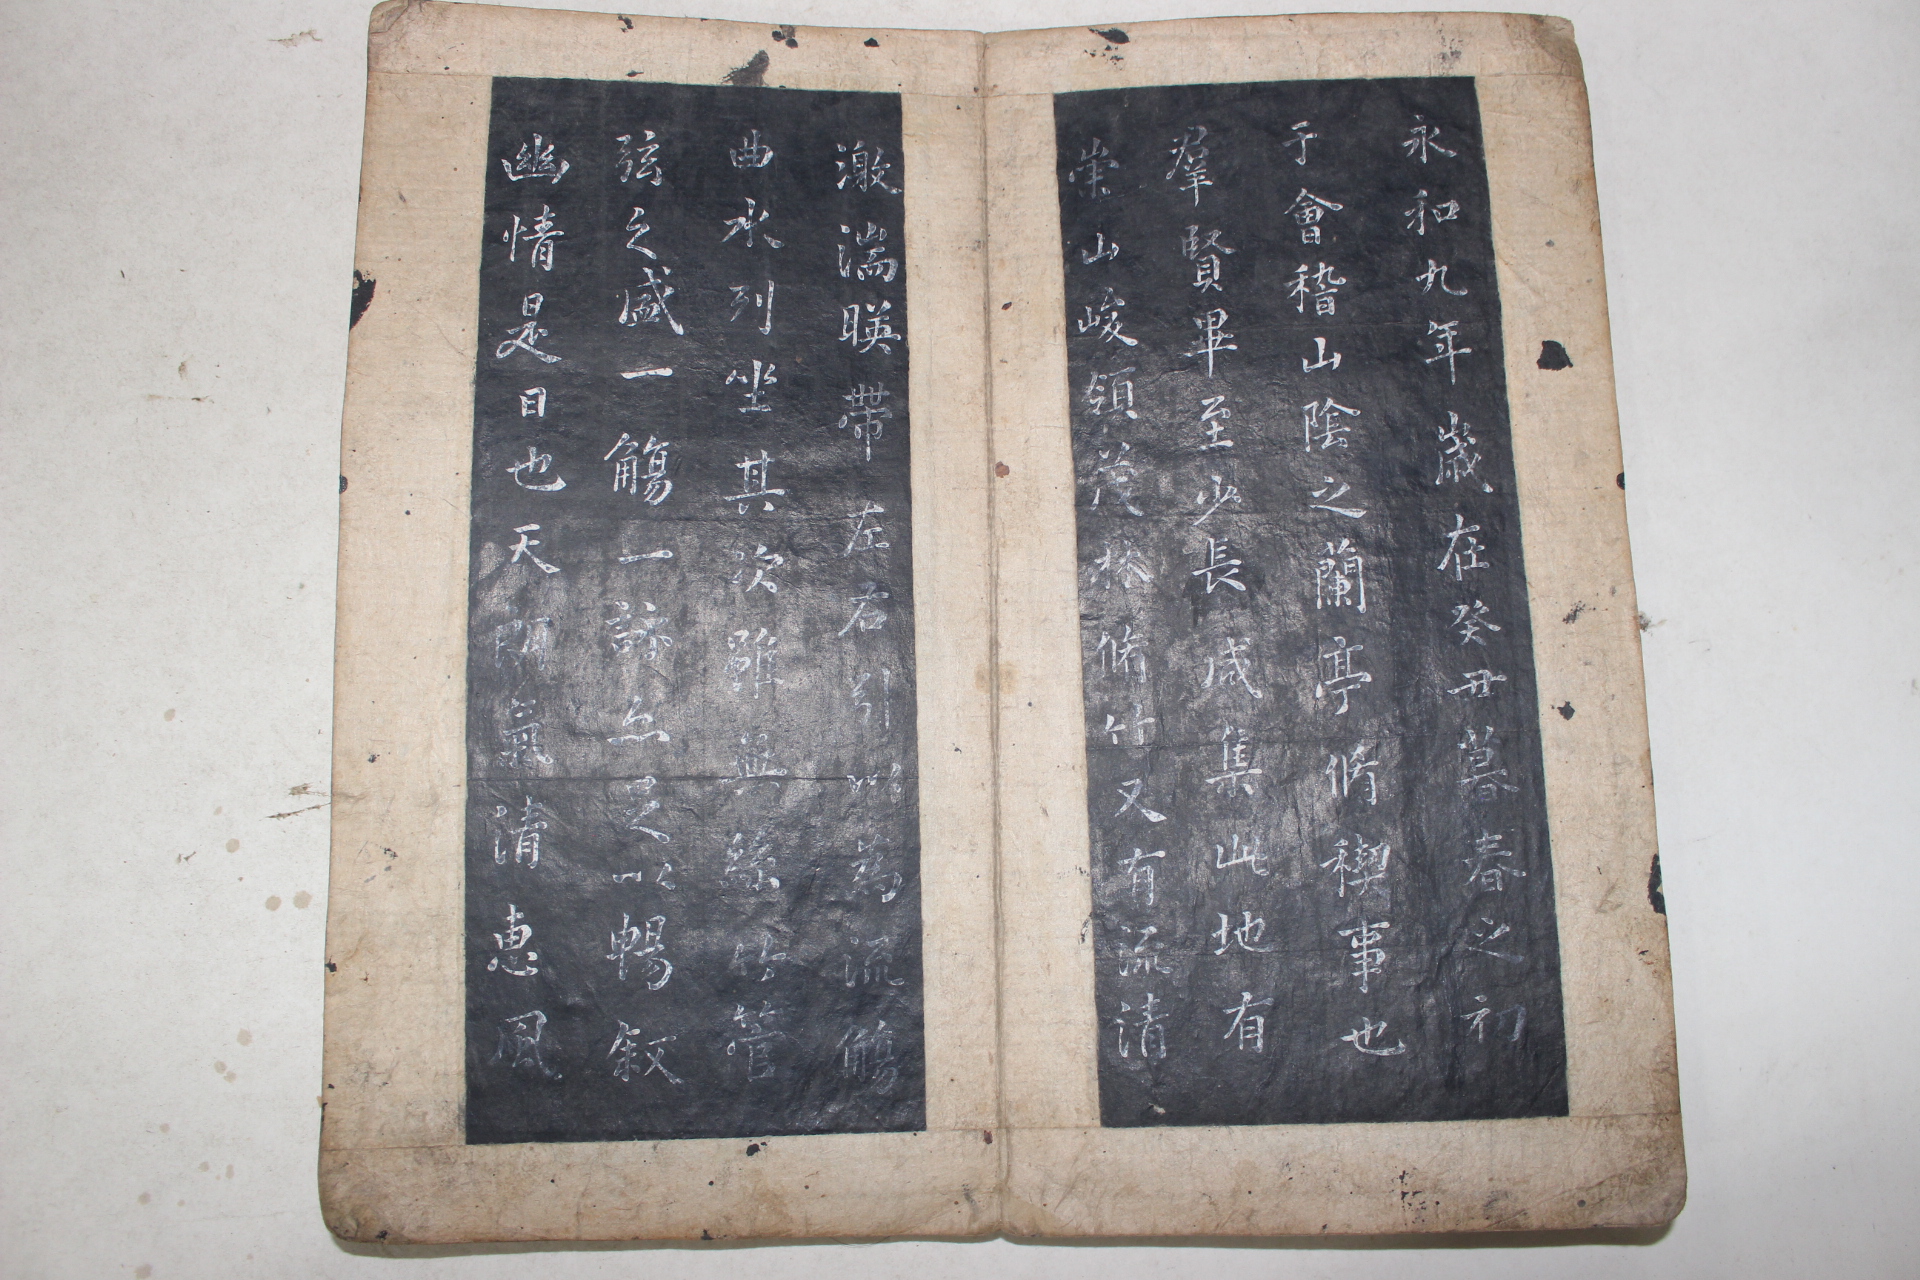 永和九年歲在癸丑暮春之初
于會稽山陰之蘭亭脩禊事也
羣賢畢至少長咸集此地有
崇山峻領茂林脩竹又有流清
激湍暎帶左右引以為流觴
曲水列坐其次雖無絲竹管
弦之盛一觴一詠亦足以暢敘
幽情是日也天朗氣清惠風